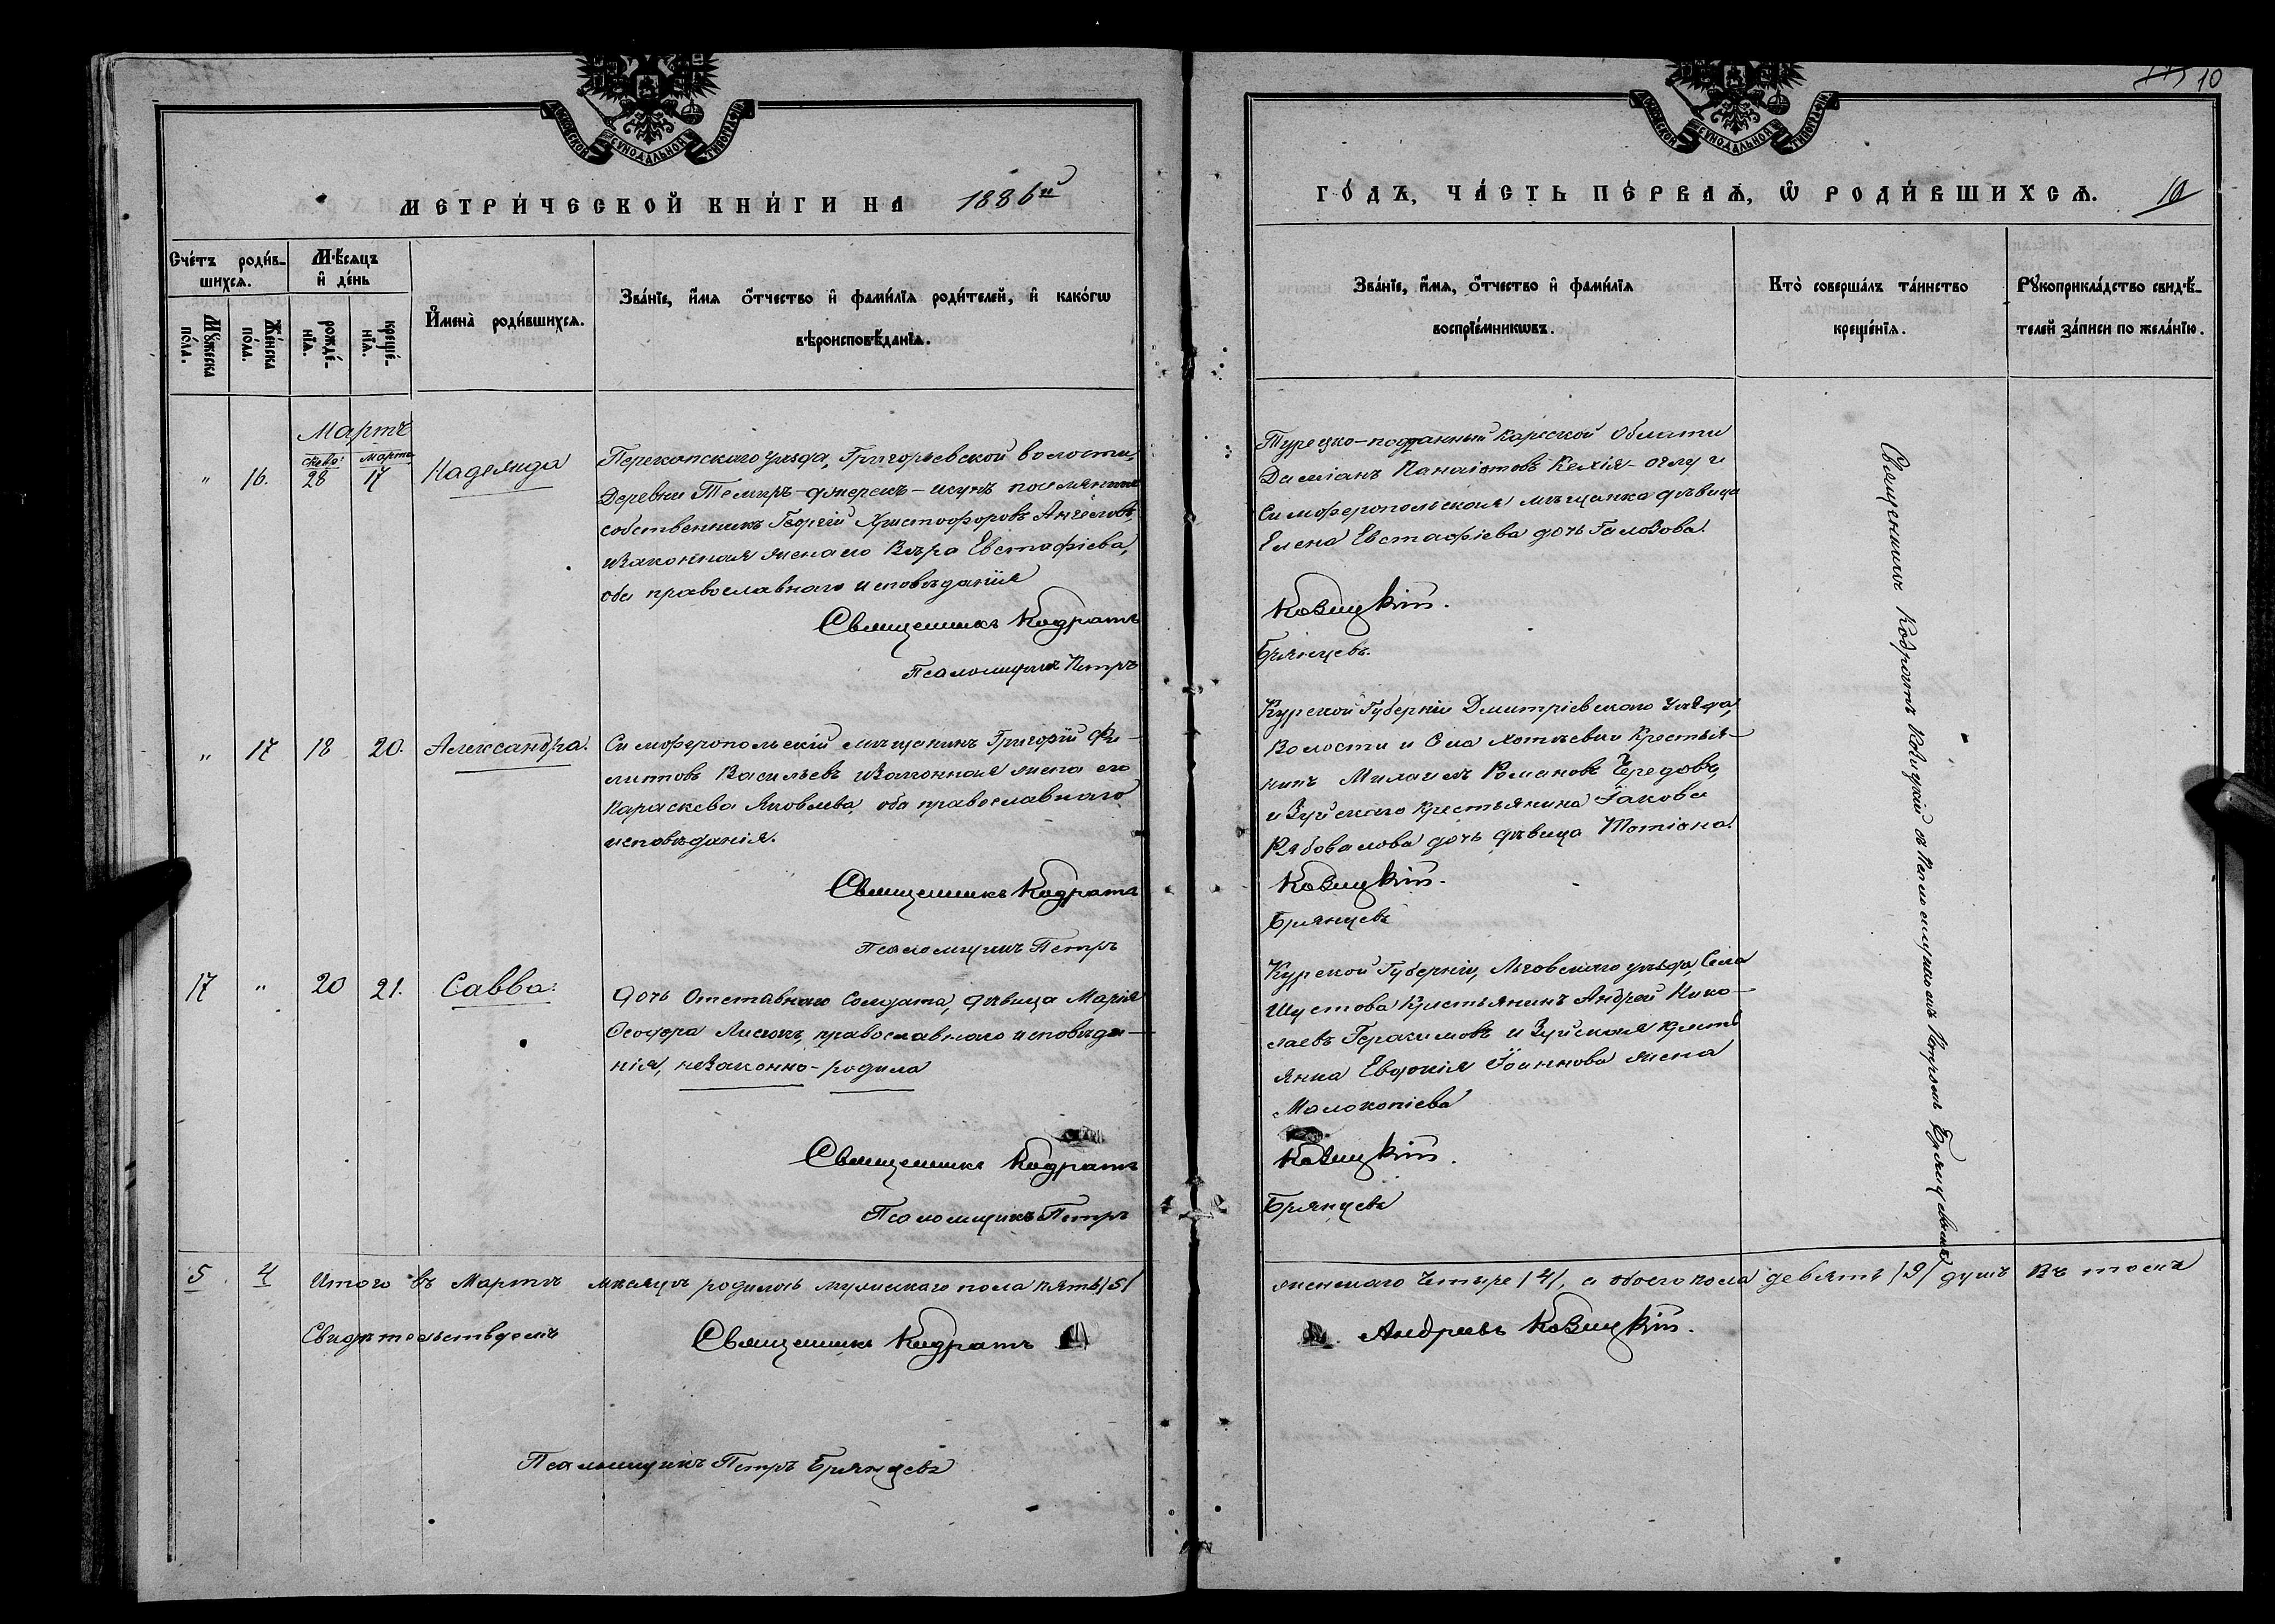 10
МЕТРИ́ЧЕСКОЙ КНИ́ГИ НА 1886й
ГО́ДЪ, ЧА́СТЬ ПЕ́РВАѦ, Ѡ РОДИ́ВШИХСѦ. 10
Сче́тъ роди́в-
шихсѧ.
Мꙋ́жеска по́ла.
Же́нска по́ла.
Мѣ́сѧцъ и҆ де́нь
рожде́-
нїѧ.
креще́-
нїѧ.
И҆мена̀ роди́вшихсѧ.
Зва́нїе, и҆́мѧ ѻ҆́тчество и҆ фами́лїѧ роди́телей, и҆ како́гѡ
вѣроисповѣ́данїѧ.
Зва́нїе, и҆́мѧ, ѻ҆́тчество и҆ фами́лїѧ
воспрїе́мникѡвъ.
Кто̀ соверша́лъ та́инство
креще́нїѧ.
Рꙋкоприкла́дство свидѣ́-
телей за́писи по жела́нїю.
Мартъ
" 16. 28 Марта 17 Надежда
Перекопскаго уѣзда, Григорьевской волости,
Деревни поселянинъ
собственникъ Георгій Христофоровъ Ангеловъ,
изаконная жена его Вѣра Евстафіева,
оба православнаго исповѣданія
Священникъ Кодратъ
Псаломщикъ Петръ
Турецко-подданный Карской Области
Даміанъ Панаіотовъ Кехія-оглу и
Симферопольская мѣщанка дѣвица
Елена Евстафіева дочь
Козицкій.
Брянцевъ.
Священникъ Кодратъ Козицкій съ Псаломщикомъ Петромъ Брянцевымъ
" 17 18 20. Александра.
Симферопольскій мѣщанинъ Григорій Фи-
липповъ Васильевъ изаконная жена его
Параскева Яковлева, оба православнаго
исповѣданія.
Священникъ Кодратъ
Псаломщикъ Петръ
Курской Губерніи Дмитріевскаго Уѣзда,
Волости и Села Крестья-
нинъ Михаилъ Романовъ Чередовъ,
и Зуйскаго Крестьянина Іакова
дочь дѣвица Татіана.
Козицкій.
Брянцевъ
17 " 20 21. Савва.
Дочь Отставнаго Солдата, дѣвица Марія
Ѳеодора православнаго исповѣда-
нія, незаконно-родила
Священникъ Кодратъ
Псаломщикъ Петръ
Курской Губерніи, Льговскаго уѣзда, Села
Шустова Крестьянинъ Андрей Нико-
лаевъ Герасимовъ и Зуйская Кресть
янка Евдокія Іоаннова жена
Козицкій.
Брянцевъ
5. 4 Итого въ Мартѣ мѣсяцѣ родилось мужескаго пола пять /5/
женскаго четыре /4/, а обоего пола девять /9/ душъ Въ томъ
Свидѣтельствуемъ Священникъ Кодратъ
Андреевъ Козицкій.
Псаломщикъ Петръ Брянцевъ